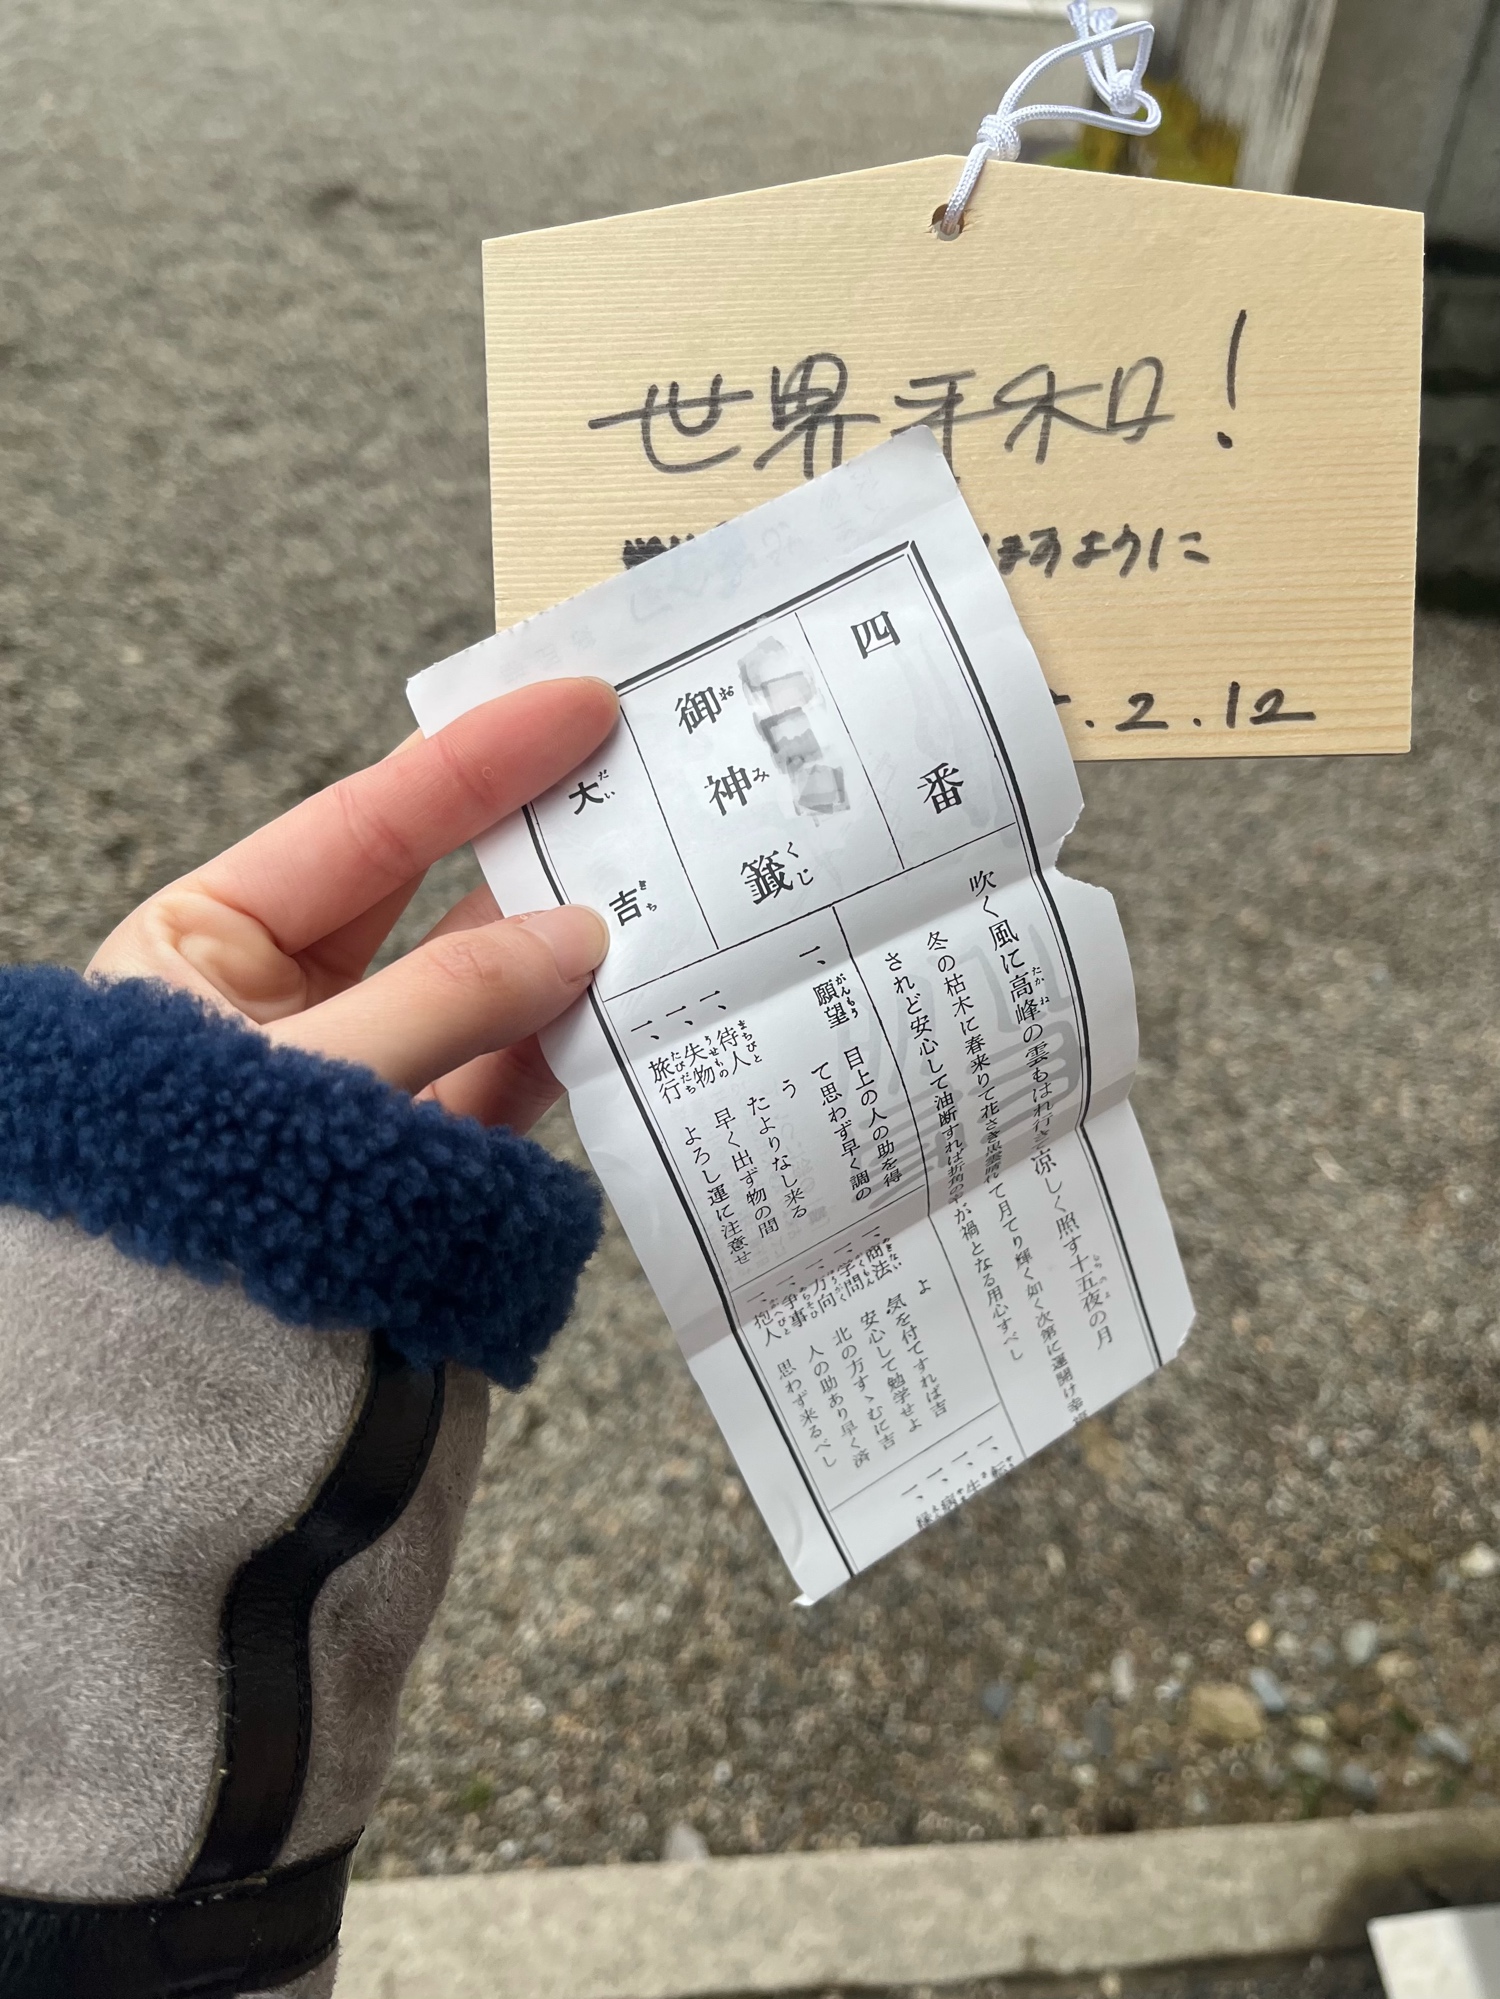 世界平和!
ますように
.2.12
四番
御神籤
おみくじ
大吉
だいきち
吹く風に高峰の雲もはれ行き
たかね
涼しく照す十五夜の月
冬の枯木に春来りて花さき
て月てり輝く如く次第に運開け幸
されど安心して油断すれば
が禍となる用心すべし
一、願望 目上の人の助を得
がんもう
て思わず早く調の
う
一、待人 たよりなし来る
まちびと
一、失物 早く出ず物の間
うせもの
一、旅行 よろし運に注意せ
たびだち
よ
一、商法 気を付てすれば吉
あきない
一、学問 安心して勉学せよ
がくもん
一、方向 北の方すゝむに吉
ほうがく
一、争事 人の助あり早く済
あらそひ
一、抱人 思わず来るべし
かかへびと
一、転
一、生
一、病
一、縁